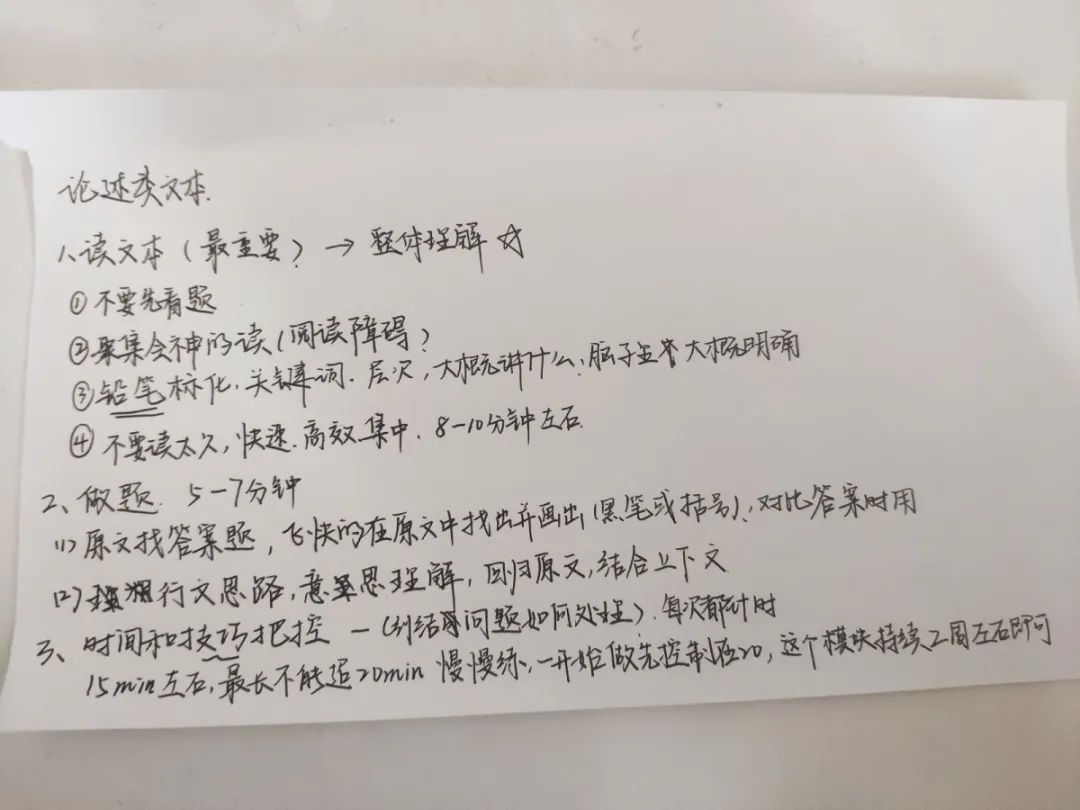 论述类文本.
1、读文本(最重要?→ 整体理解 ☆
① 不要先看题
② 聚集会神的读(阅读障碍?
③ 铅笔标化,关键词.层次,大概讲什么;脑子里 大概明确
④ 不要读太久,快速.高效集中. 8-10分钟左右.
2、做题. 5-7分钟
(1) 原文找答案题,飞快的在原文中找出并画出(黑笔或括号),对比答案时用
(2) 行文思路,意思理解,回归原文,结合上下文
3、时间和技巧把控 —(纠结问题如何处理).每次都计时
15min左右,最长不能超20min 慢慢练,一开始做先控制在20,这个模块持续2周左右即可